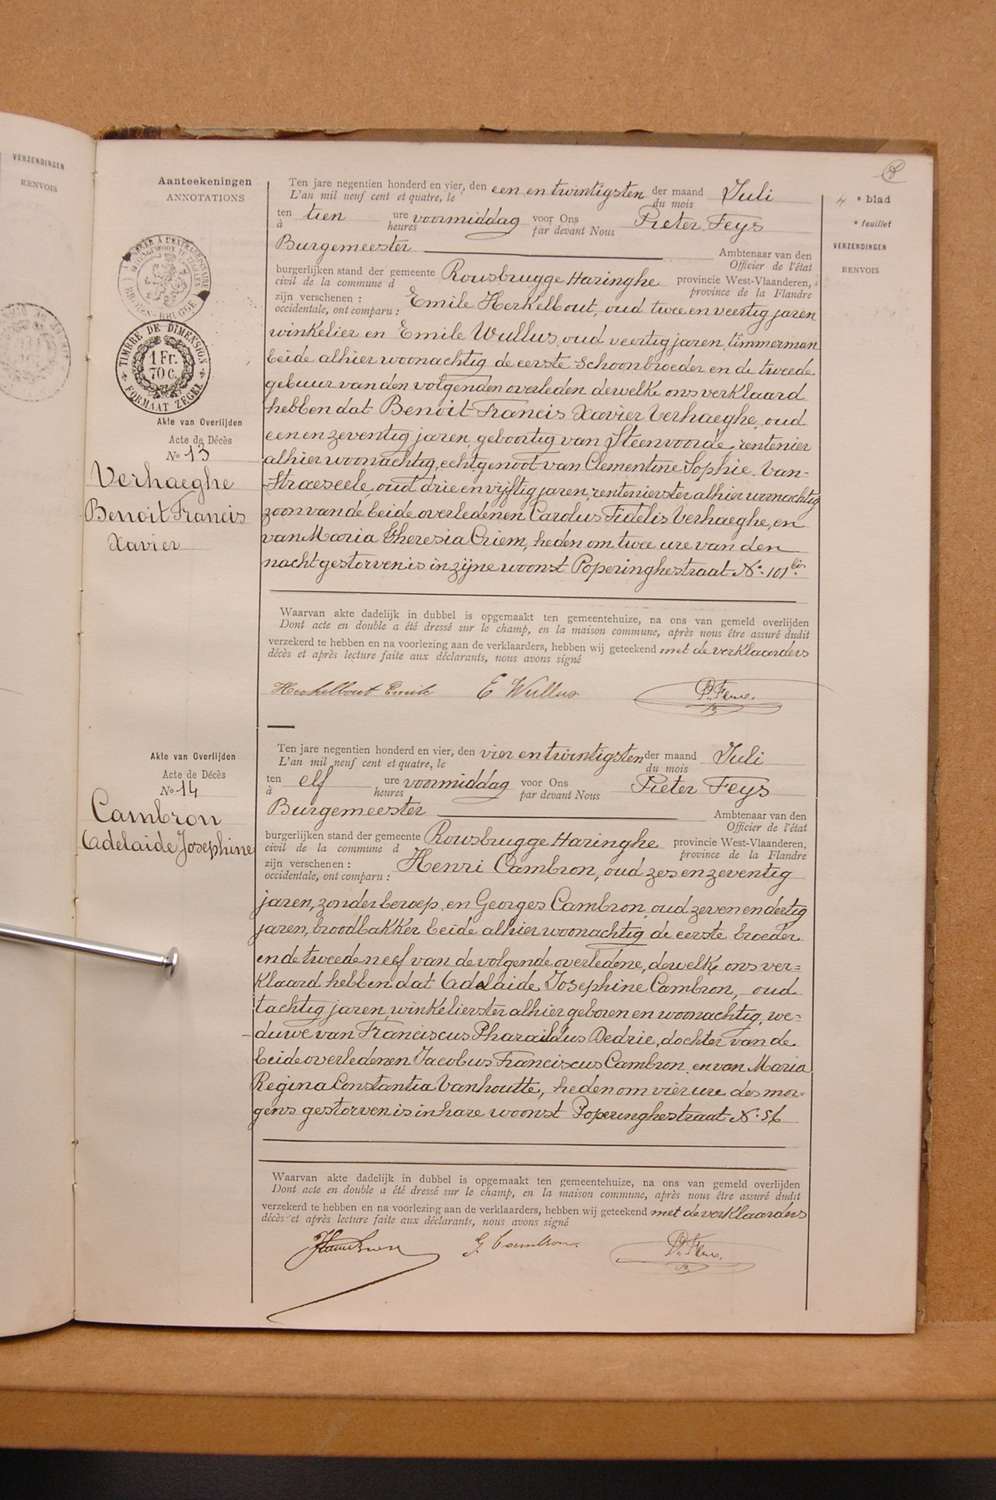 VERZENDINGEN
RENVOIS
Aanteekeningen
ANNOTATIONS
TIMBRE DE DIMENSION
1 Fr.
70 c.
FORMAAT ZEGEL
Akte van Overlijden
Acte de Décès
No 13
Verhaeghe
Benoit Francis
Xavier
4e blad
e feuillet
VERZENDINGEN
RENVOIS
Ten jare negentien honderd en vier, den een en twintigsten der maand Juli
L'an mil neuf cent et quatre, le du mois
ten tien ure voormiddag voor Ons Pieter Feys
à heures par devant Nous
Burgemeester Ambtenaar van den
Officier de l'état
burgerlijken stand der gemeente Rousbrugge Haringhe provincie West-Vlaanderen,
civil de la commune d province de la Flandre
zijn verschenen : Emile Herkelbout, oud twee en veertig jaren
occidentale, ont comparu :
winkelier en Emile Wullus, oud veertig jaren, timmerman
beide alhier woonachtig de eerste schoonbroeder en de tweede
gebuur van den volgenden overleden dewelke ons verklaard
hebben dat Benoit Francis Xavier Verhaeghe, oud
een en zeventig jaren, geboortig van Steenvoorde, rentenier
alhier woonachtig, echtgenoot van Clementine Sophie Van-
Straeseele, oud drie en vijftig jaren, rentenierster alhier woonachtig
zoon van de beide overledenen Carolus Fidelis Verhaeghe, en
van Maria Theresia Criem, heden om twee ure van den
nacht gestorven is in zijne woonst Poperinghestraat No 101 bis.
Waarvan akte dadelijk in dubbel is opgemaakt ten gemeentehuize, na ons van gemeld overlijden
Dont acte en double a été dressé sur le champ, en la maison commune, après nous être assuré dudit
verzekerd te hebben en na voorlezing aan de verklaarders, hebben wij geteekend met de verklaarders
décès et après lecture faite aux déclarants, nous avons signé
Herkelbout Emile E Wullus P. Feys
Akte van Overlijden
Acte de Décès
No 14
Cambron
Adelaide Josephine
Ten jare negentien honderd en vier, den vier en twintigsten der maand Juli
L'an mil neuf cent et quatre, le du mois
ten elf ure voormiddag voor Ons Pieter Feys
à heures par devant Nous
Burgemeester Ambtenaar van den
Officier de l'état
burgerlijken stand der gemeente Rousbrugge Haringhe provincie West-Vlaanderen,
civil de la commune d province de la Flandre
zijn verschenen : Henri Cambron, oud zes en zeventig
occidentale, ont comparu :
jaren, zonder beroep, en Georges Cambron, oud zeven en dertig
jaren, broodbakker beide alhier woonachtig de eerste broeder
en de tweede neef van de volgende overledene, dewelke ons ver=
klaard hebben dat Adelaide Josephine Cambron, oud
tachtig jaren, winkelierster alhier geboren en woonachtig, we-
duwe van Franciscus Pharaïldus Dedrie, dochter van de
beide overledenen Jacobus Franciscus Cambron en van Maria
Regina Constantia Vanhoutte, heden om vier ure des mor-
gens gestorven is in hare woonst Poperinghestraat No 56
Waarvan akte dadelijk in dubbel is opgemaakt ten gemeentehuize, na ons van gemeld overlijden
Dont acte en double a été dressé sur le champ, en la maison commune, après nous être assuré dudit
verzekerd te hebben en na voorlezing aan de verklaarders, hebben wij geteekend met de verklaarders
décès et après lecture faite aux déclarants, nous avons signé
G Cambron P. Feys